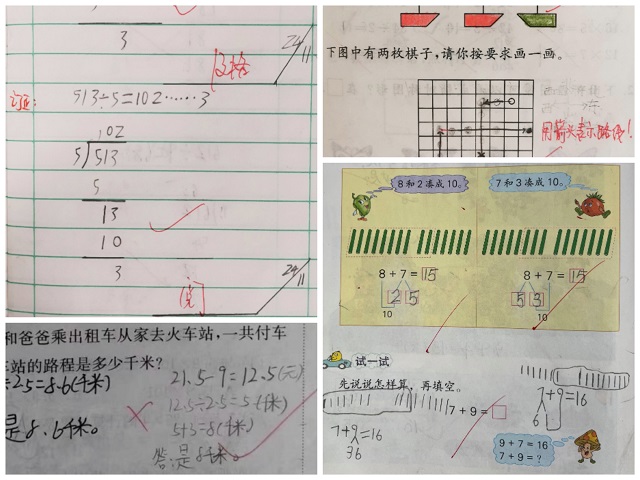 3
24/11
及格
订正:
513÷5=102……3
102
5 513
5
13
10
3
24/11
下图中有两枚棋子，请你按要求画一画。
用箭头表示路线!
8和2凑成10。
7和3凑成10。
8+7=15
2 5
10
8+7=15
5 3
10
试一试
先说说怎样算，再填空。
7+9=□
7+9=16
6
7+9=16
36
9+7=16
7+9=?
和爸爸乘出租车从家去火车站，一共付车
站的路程是多少千米?
÷2.5=8.6(千米)
是8.6千米。
21.5-9=12.5(元)
12.5÷2.5=5(千米)
5+3=8(千米)
答:是8千米。